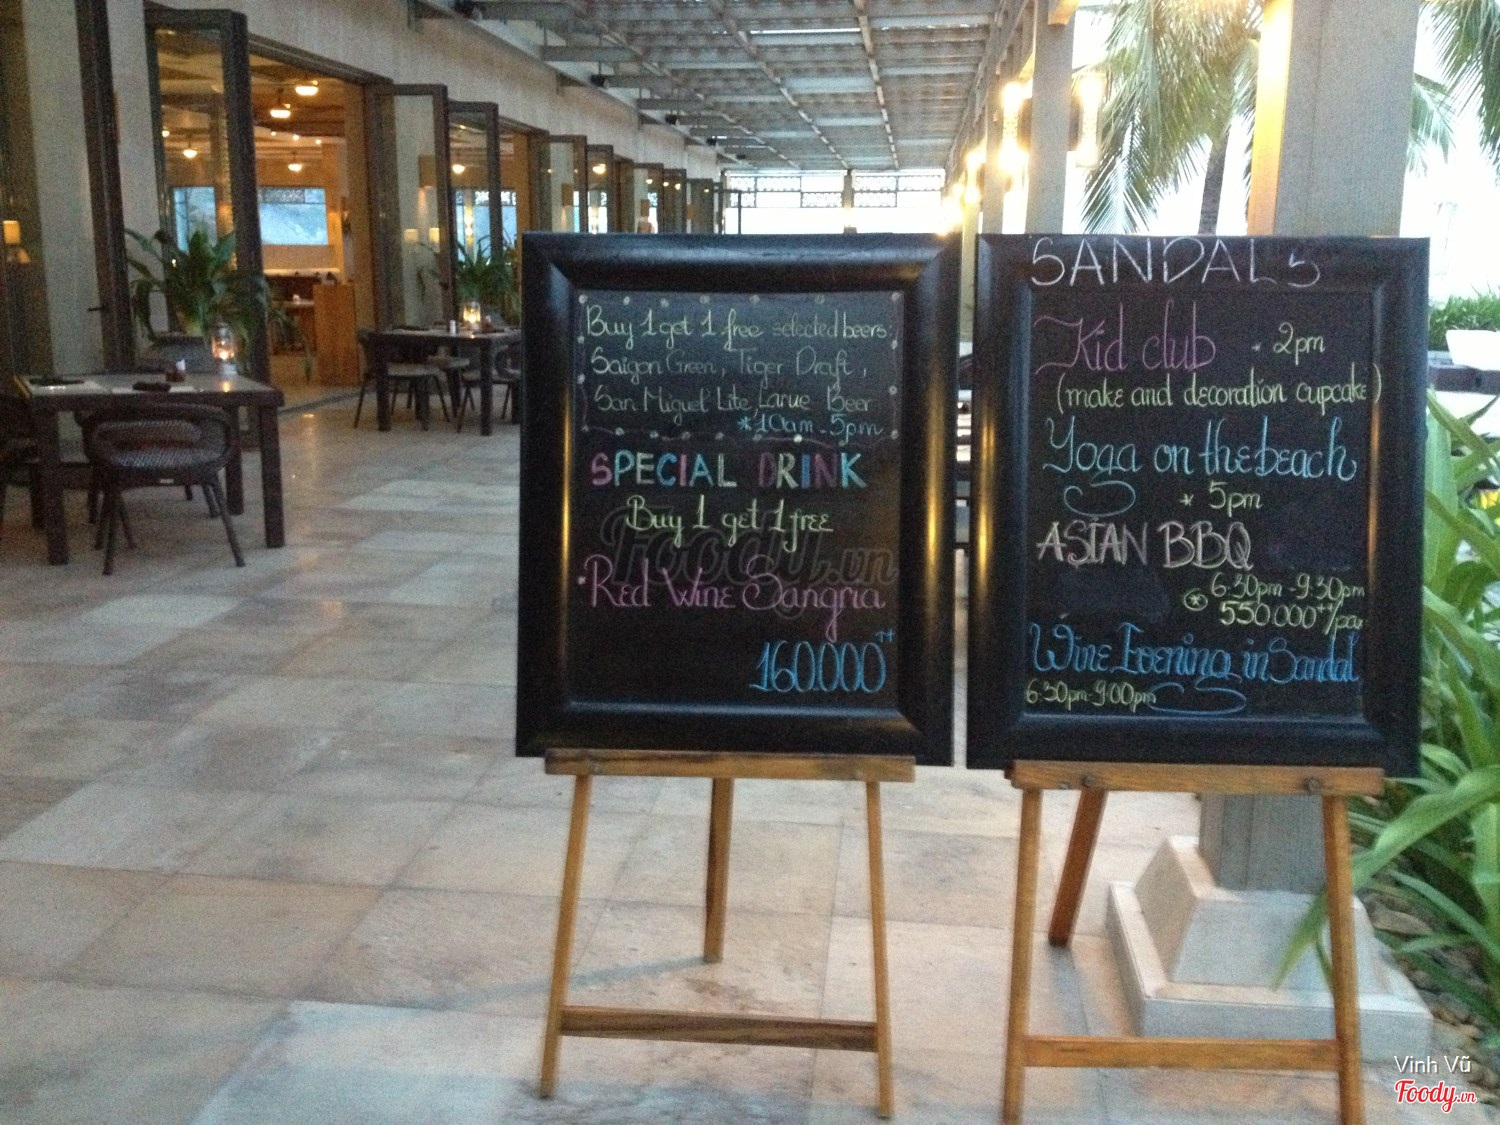 Buy 1 get 1 free selected beers:
Saigon Green, Tiger Draft,
San Miguel Lite Larue Beer
*10am - 5pm
SPECIAL DRINK
Buy 1 get 1 free
*Red Wine Sangria
160.000++
SANDALS
Kid club * 2pm
(make and decoration cupcake)
Yoga on the beach
* 5pm
ASIAN BBQ
6:30pm - 9:30pm
* 550.000++/pax
Wine Evening in Sandal
6:30pm-9:00pm
Foody.vn
Vinh Vũ
Foody.vn